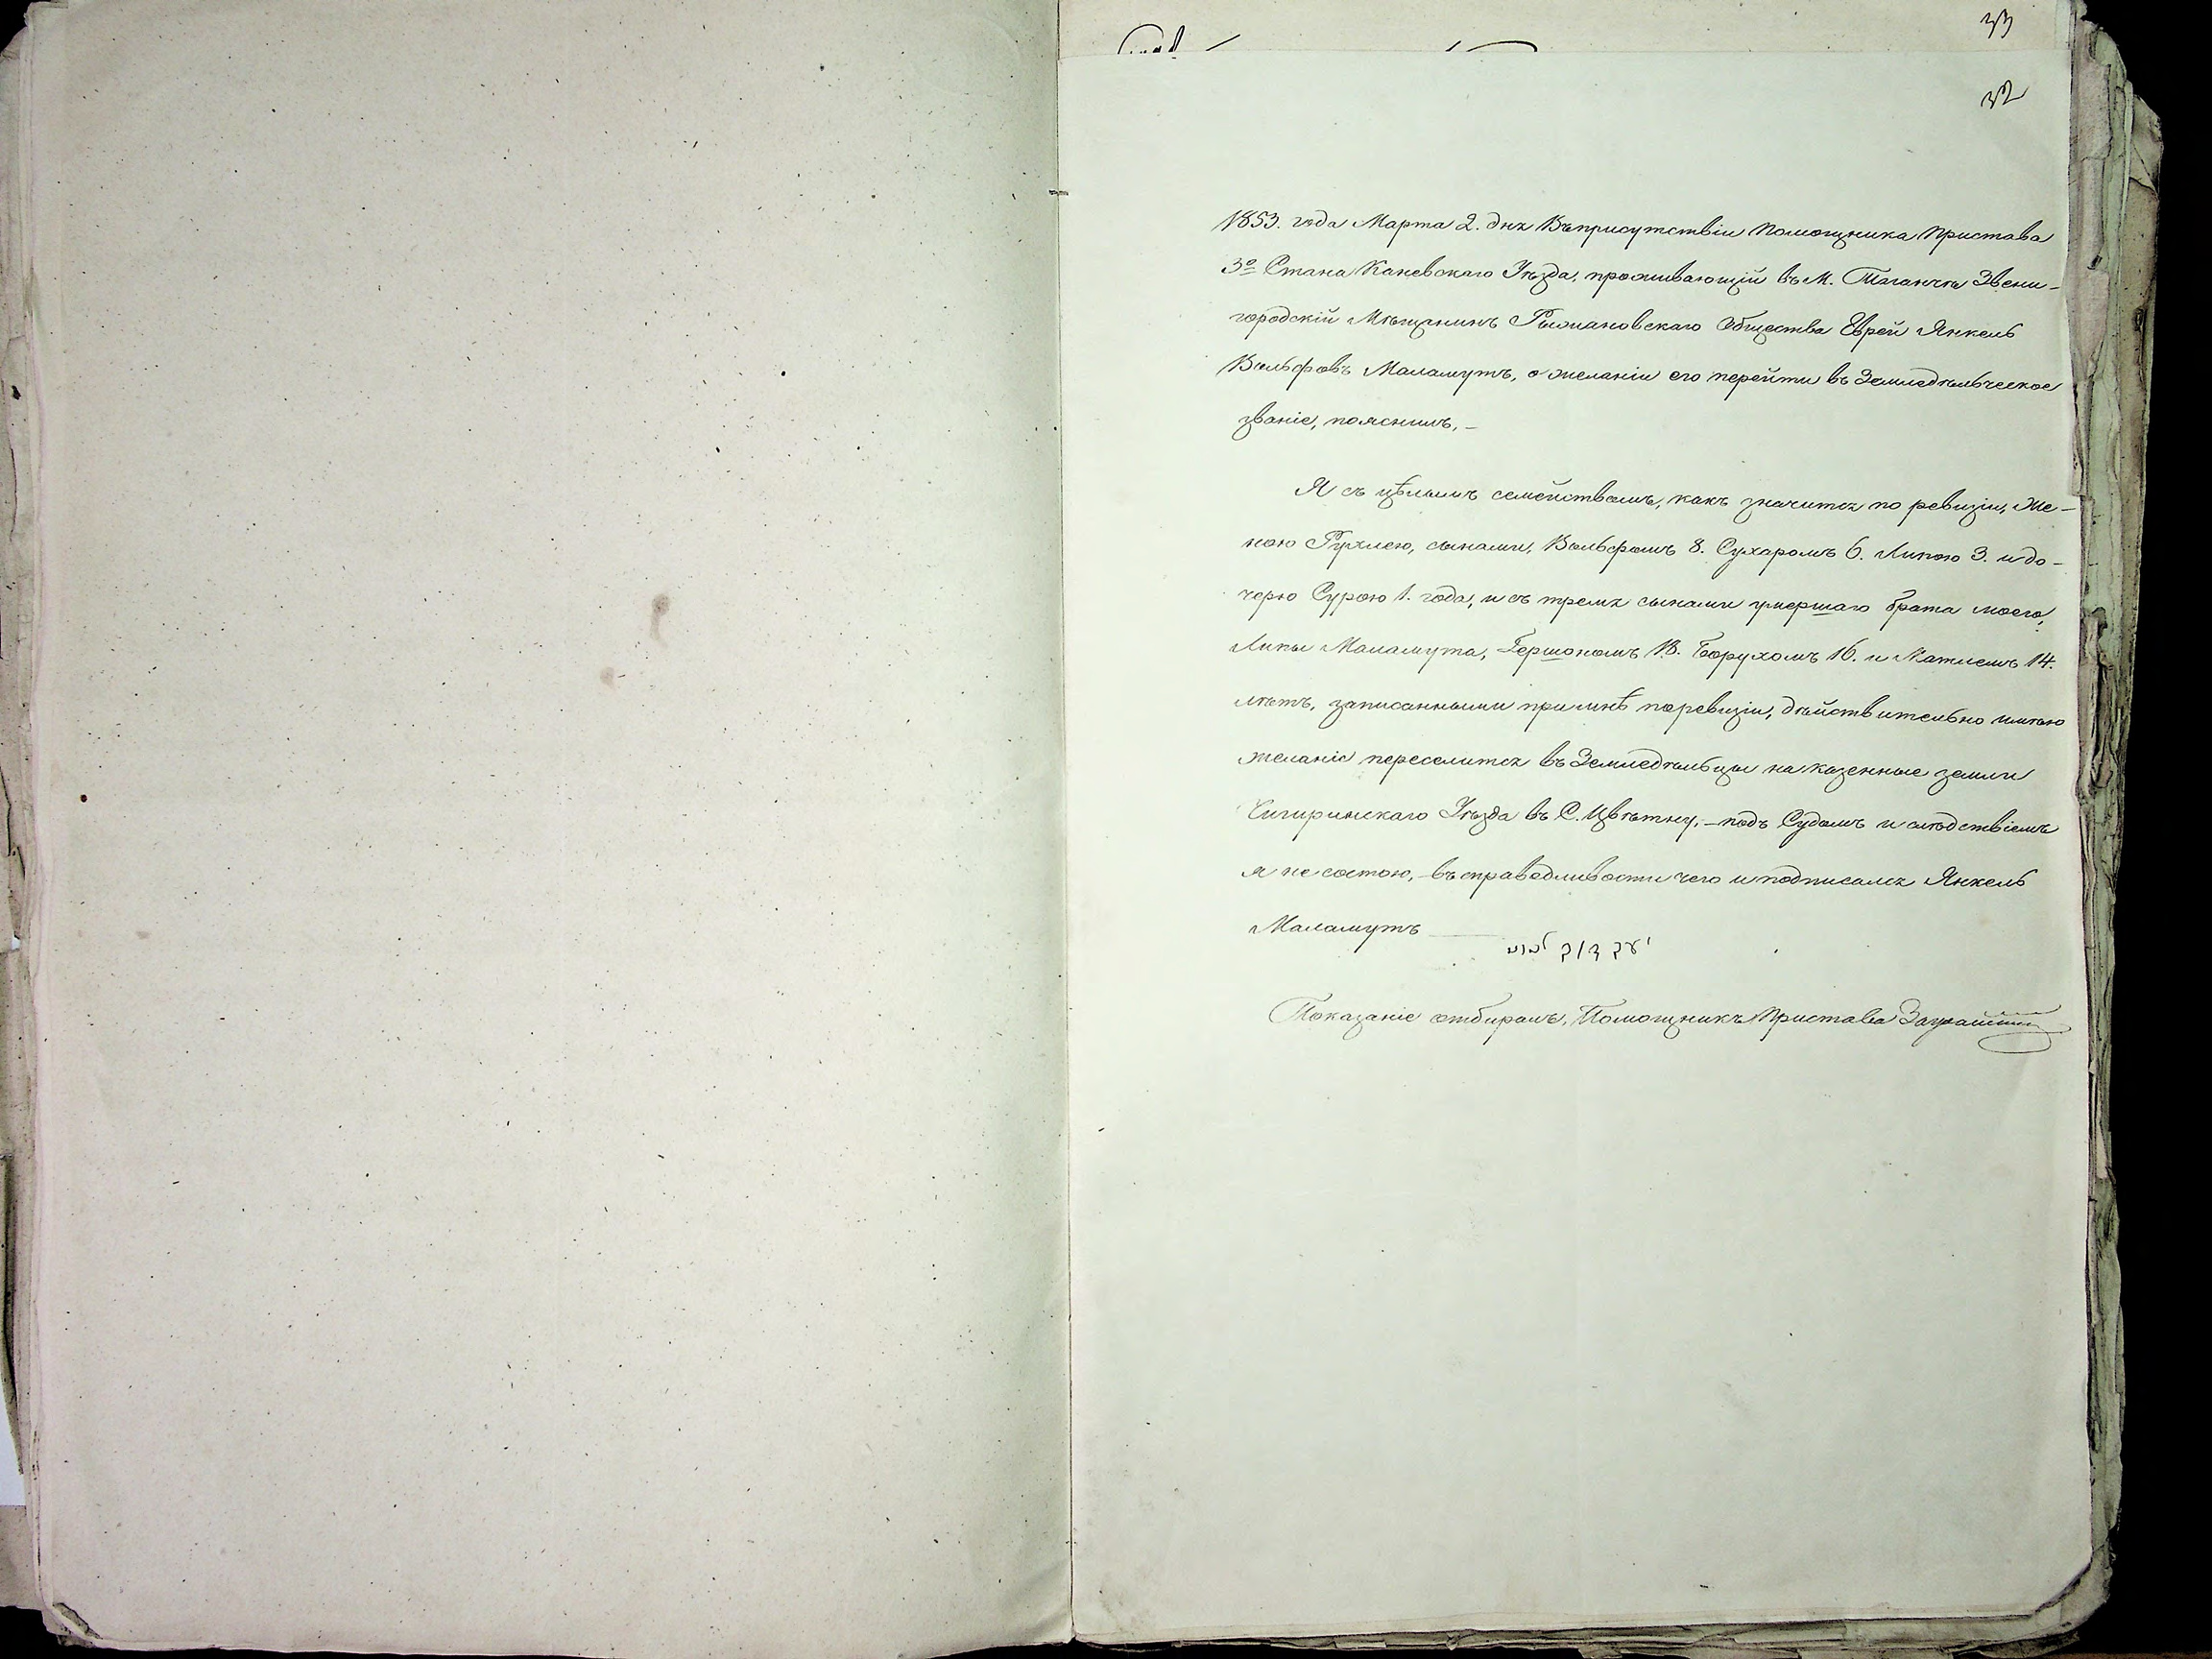 33
32
1853. года Марта 2. дня Въ присутствіи Помощника Пристава
3º Стана Каневскаго Уѣзда, проживающій въ М. Таганчѣ Звени-
городскій Мѣщанинъ Рыжановскаго Общества Еврей Янкель
Вольфовъ Маламутъ, о желаніи его перейти въ Земледѣльческое
званіе, пояснилъ, –
Я съ цѣлымъ семействомъ, какъ значится по ревизіи, Же-
ною Рухлею, сынами, Вольфомъ 8. Сухаромъ 6. Липою 3. и до-
черю Сурою 1. года, и съ тремя сынами умершаго брата моего,
Липы Маламута, Гершономъ 18. Борухомъ 16. и Матлемъ 14.
лѣтъ, записанными при мнѣ по ревизіи, дѣйствительно имѣю
желаніе переселится въ Земледѣльцы на казенные земли
Чигиринскаго Уѣзда въ С. Цвѣтну, – подъ Судомъ и слѣдствіемъ
я не состою, – въ справедливости чего и подписался Янкель
Маламутъ
Показаніе отбиралъ, Помощникъ Пристава